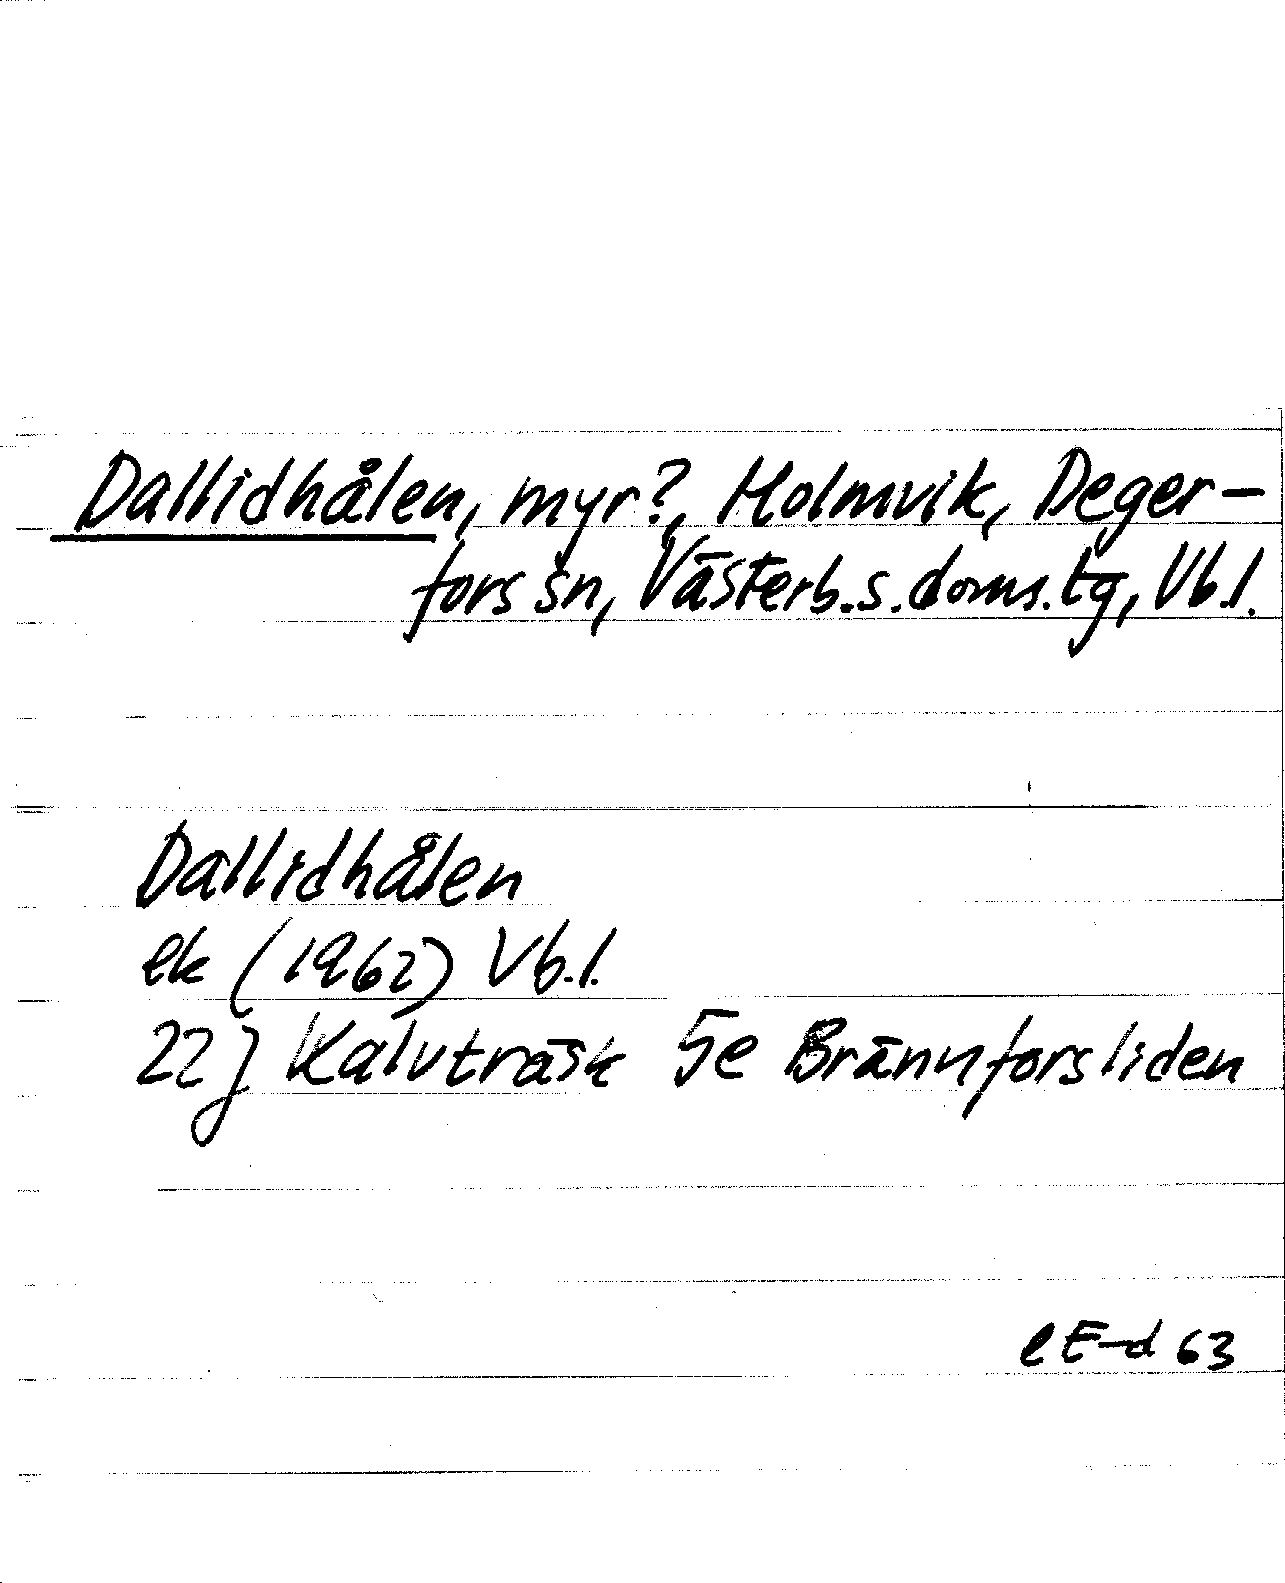 Dallidhålen, myr?, Holmvik, Deger-
fors sn, Västerb.s.doms.tg, Vb.l.
Dallidhålen
ek (1962) Vb.l.
22 J Kalvträsk 5e Brännforsliden
eE-d 63